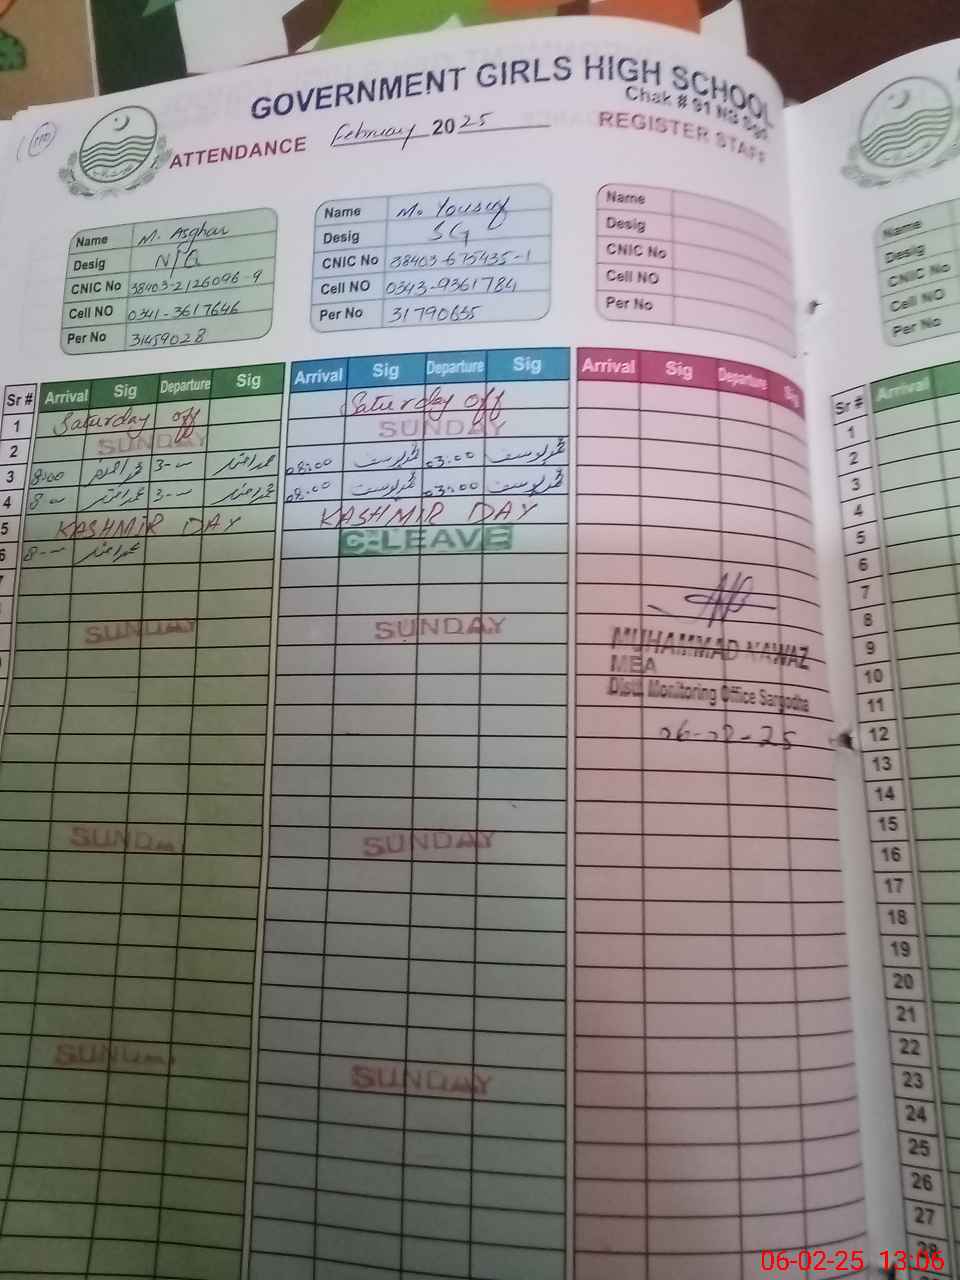 GOVERNMENT GIRLS HIGH SCHOOL
Chak # 91 NB
ATTENDANCE February 2025 REGISTER STAFF
Name M. Asghar
Desig N/Q
CNIC No 38403-2126096-9
Cell NO 0341-3617646
Per No 31459028
Name M. Yousuf
Desig SG
CNIC No 38403-675435-1
Cell NO 0343-9361784
Per No 31790655
Name
Desig
CNIC No
Cell NO
Per No
Name
Desig
CNIC No
Cell NO
Per No
Sr # Arrival Sig Departure Sig Arrival Sig Departure Sig Arrival Sig Departure Sig Sr # Arrival
1 Saturday off Saturday off 1
2 SUNDAY SUNDAY 2
3 8:00 3-- 08:00 محمد یوسف 03:00 محمد یوسف 3
4 8-- 3-- 08:00 محمد یوسف 03:00 محمد یوسف 4
5 KASHMIR DAY KASHMIR DAY 5
6 8-- C-LEAVE 6
7
8
SUNDAY SUNDAY 9
MUHAMMAD NAWAZ
MEA
10
Distt Monitoring Office Sargodha
11
06-02-25 12
13
14
15
SUNDAY SUNDAY 16
17
18
19
20
21
22
SUNDAY SUNDAY 23
24
25
26
27
28
06-02-25 13:06